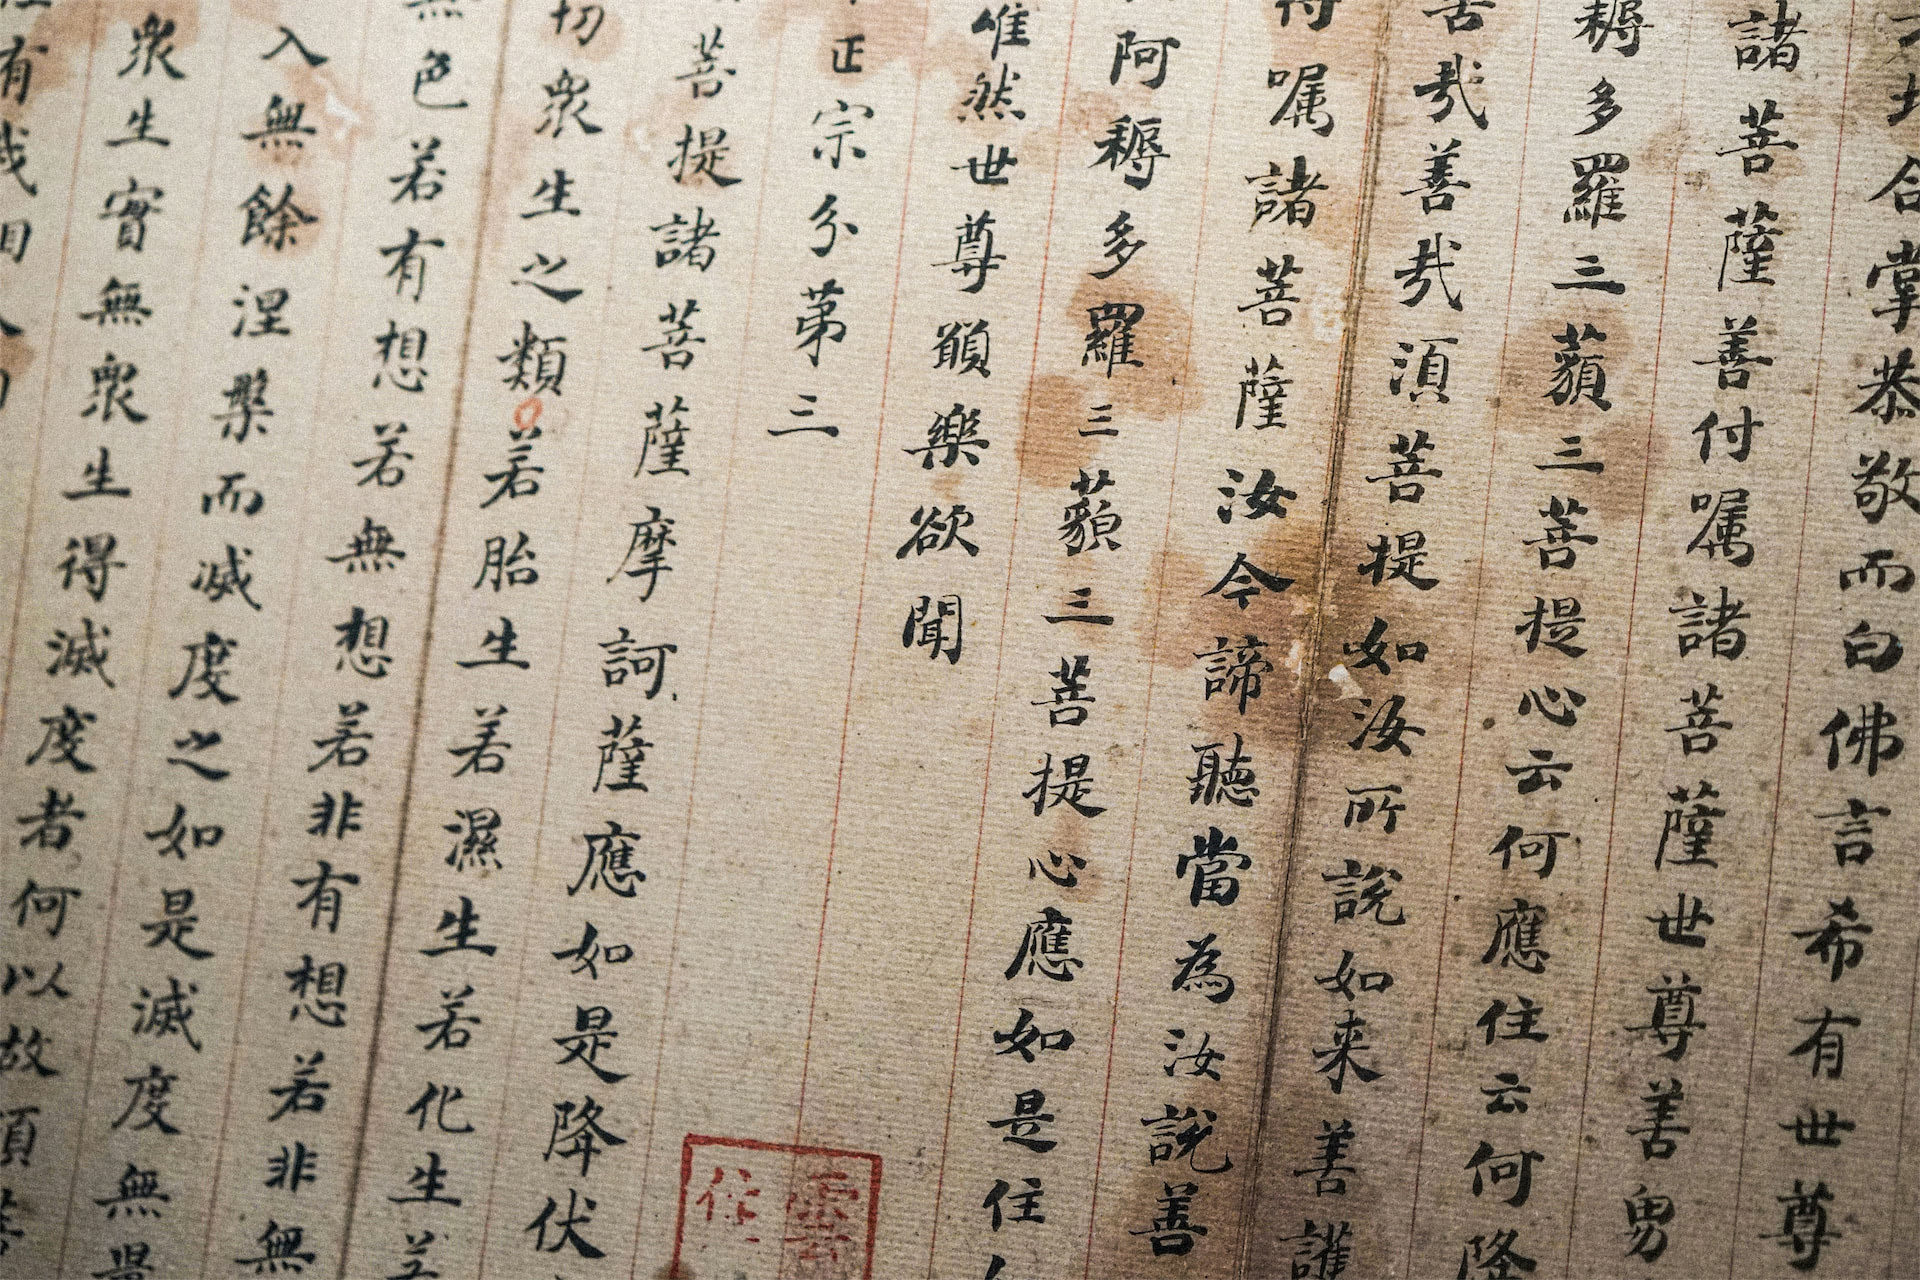 地合掌恭敬而白佛言希有世尊
諸菩薩善付嘱諸菩薩世尊善男
耨多羅三藐三菩提心云何應住云何降
㢤善㢤湏菩提如汝所說如来善護
嘱諸菩薩汝今諦聽當為汝說善
阿耨多羅三藐三菩提心應如是住
唯然世尊頋樂欲聞
正宗分苐三
菩提諸菩薩摩訶薩應如是降伏
切衆生之類若胎生若濕生若化生若
色若有想若無想若非有想若非無
入無餘涅槃而滅度之如是滅度無量
衆生實無衆生得滅度者何以故湏菩
有我相人相
雲
住